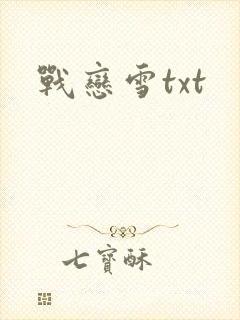 戰戀雪txt
七寶酥